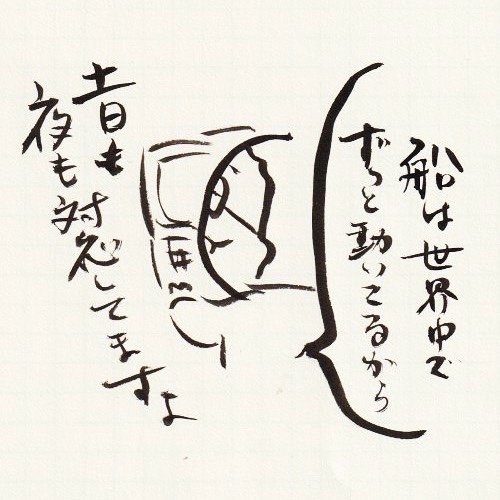 船は世界中で
ずっと動いてるから
土日も
夜も対応してますよ